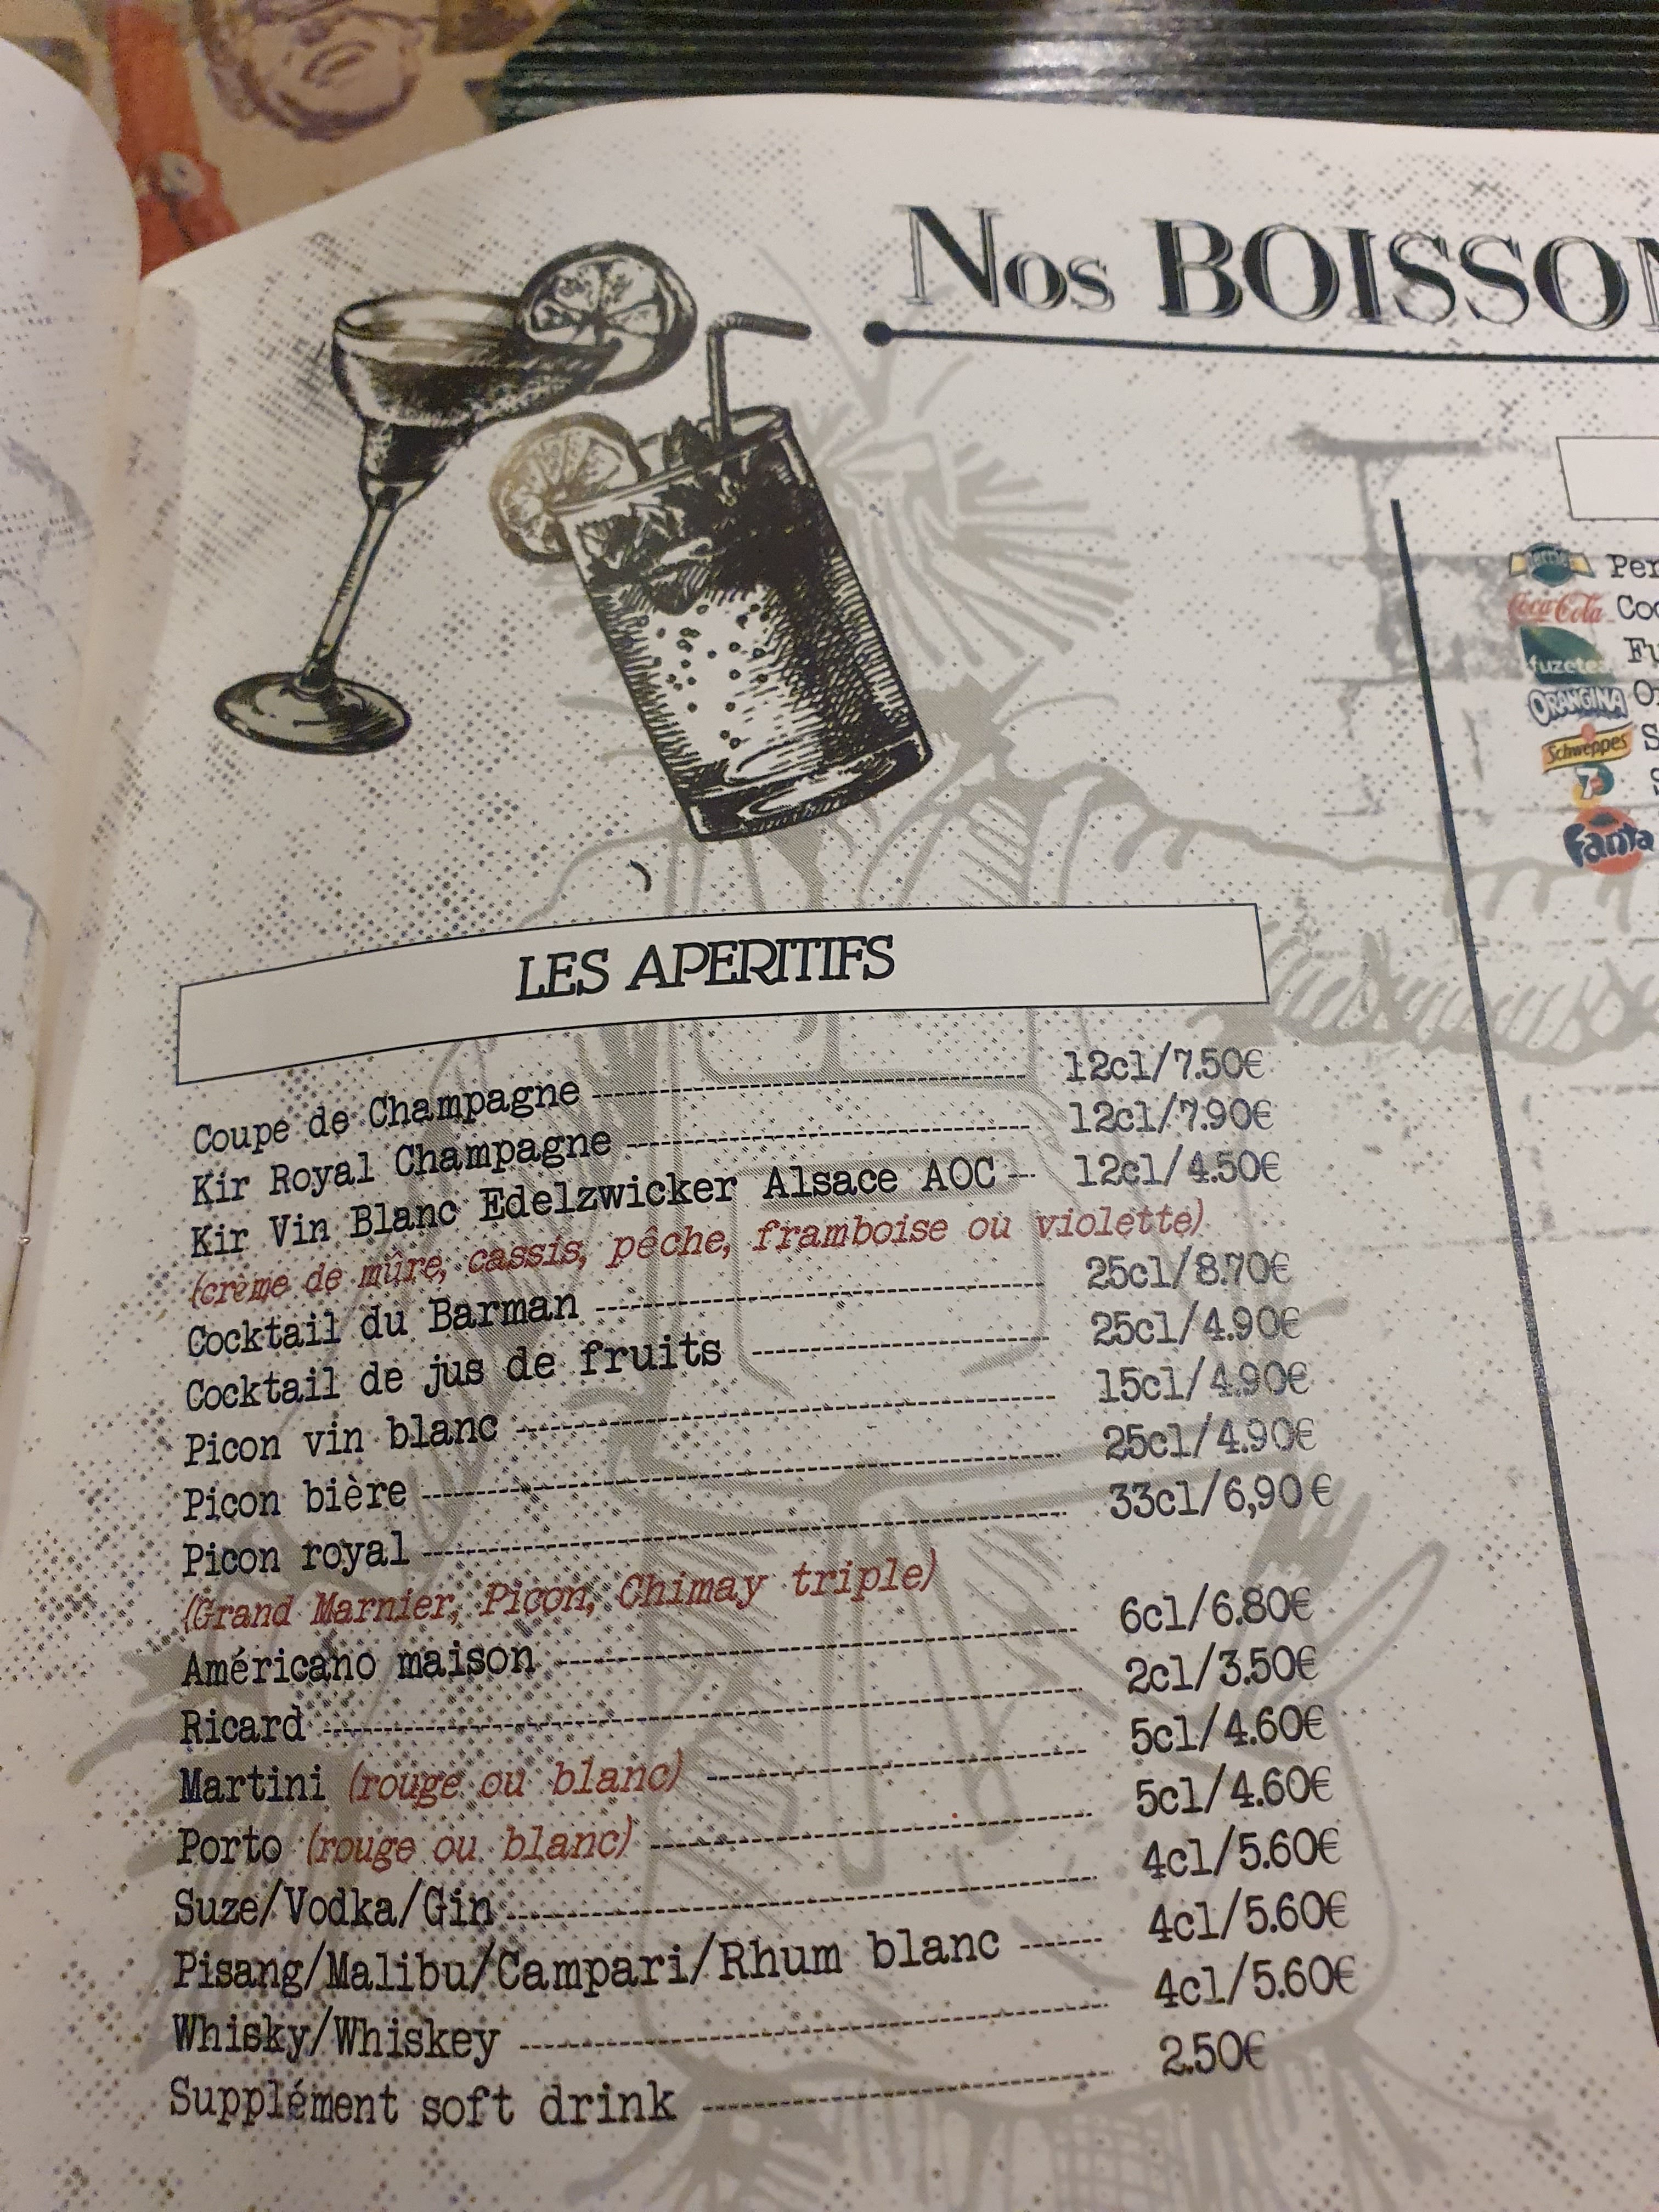 Nos BOISSON
LES APERITIFS
Coupe de Champagne 12cl/7.50€
Kir Royal Champagne 12cl/7.90€
Kir Vin Blanc Edelzwicker Alsace AOC 12cl/4.50€
(crème de mûre, cassis, pêche, framboise ou violette)
Cocktail du Barman 25cl/8.70€
Cocktail de jus de fruits 25cl/4.90€
Picon vin blanc 15cl/4.90€
Picon bière 25cl/4.90€
Picon royal 33cl/6,90€
(Grand Marnier, Picon, Chimay triple)
Américano maison 6cl/6.80€
Ricard 2cl/3.50€
Martini (rouge ou blanc) 5cl/4.60€
Porto (rouge ou blanc) 5cl/4.60€
Suze/Vodka/Gin 4cl/5.60€
Pisang/Malibu/Campari/Rhum blanc 4cl/5.60€
Whisky/Whiskey 4cl/5.60€
Supplément soft drink 2.50€
Perrier Per
Coca-Cola Coc
fuzetea Fu
ORANGINA Or
Schweppes S
7 S
Fanta